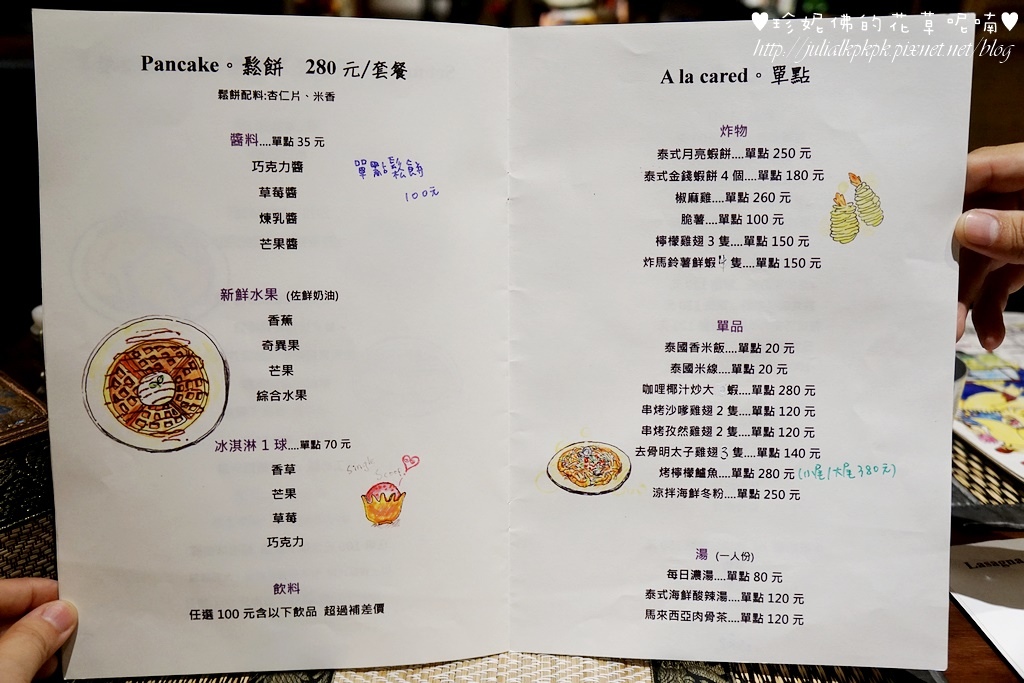 ♥珍妮佛的花草呢喃♥
http://julialkpkpk.pixnet.net/blog
Pancake。鬆餅 280 元/套餐
鬆餅配料:杏仁片、米香
醬料....單點 35 元
巧克力醬
草莓醬
煉乳醬
芒果醬
單點鬆餅
100元
新鮮水果 (佐鮮奶油)
香蕉
奇異果
芒果
綜合水果
冰淇淋 1 球....單點 70 元
香草
芒果
草莓
巧克力
飲料
任選 100 元含以下飲品 超過補差價
A la cared。單點
炸物
泰式月亮蝦餅....單點 250 元
泰式金錢蝦餅 4 個....單點 180 元
椒麻雞....單點 260 元
脆薯....單點 100 元
檸檬雞翅 3 隻....單點 150 元
炸馬鈴薯鮮蝦 4 隻....單點 150 元
單品
泰國香米飯....單點 20 元
泰國米線....單點 20 元
咖哩椰汁炒大 蝦....單點 280 元
串烤沙嗲雞翅 2 隻....單點 120 元
串烤孜然雞翅 2 隻....單點 120 元
去骨明太子雞翅 3 隻....單點 140 元
烤檸檬鱸魚....單點 280 元 (小尾/大尾380元)
涼拌海鮮冬粉....單點 250 元
湯 (一人份)
每日濃湯....單點 80 元
泰式海鮮酸辣湯....單點 120 元
馬來西亞肉骨茶....單點 120 元
Lasagna